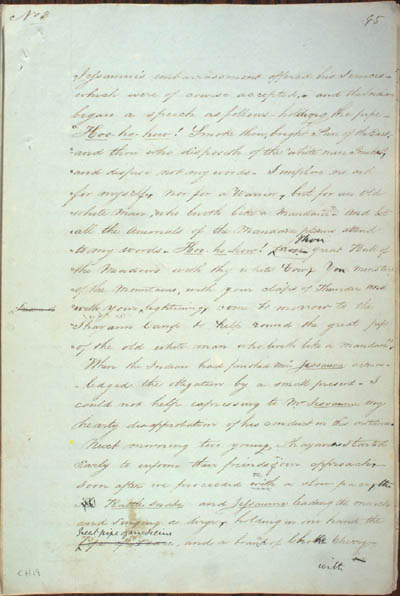 No 8
95
Jessaume's embarrassment offered his Services
which were of course accepted, and the Indian
began a speech as follows - holding the pipe -
"Hoo-ho-how! Smoke thou, bright Sun of the East,
and thou who disposeth of the white man
and despise not my words. I implore no aid
for myself, nor for a Warrior, but for an Old
white Man, who liveth like a Mandan. And let
all the Animals of the Mandans attend
to my words - Hoo-ho-how! Thou great Bull of
the Meadows with thy white Cow, You monsters
of the Mountains, with your claps of Thunder and
with your lightning, come to morrow to the
Shawann Camp to help round the great pipe
of the old white man who liveth like a mandan".
When the Indian had finished Mr. Jessaume
ledged the obligation by a small present - I
could not help expressing to Mr Jessaume my
hearty disapprobation of his conduct in this
Next morning two young started
early to inform their friends of our approach,
soon after we proceeded with a slow pace, the
Rattle Snake and Jessaume leading the march
and singing a dirge, holding in one hand the
great pipe of medicine
and a brand of Choke Cherry
with
CH19